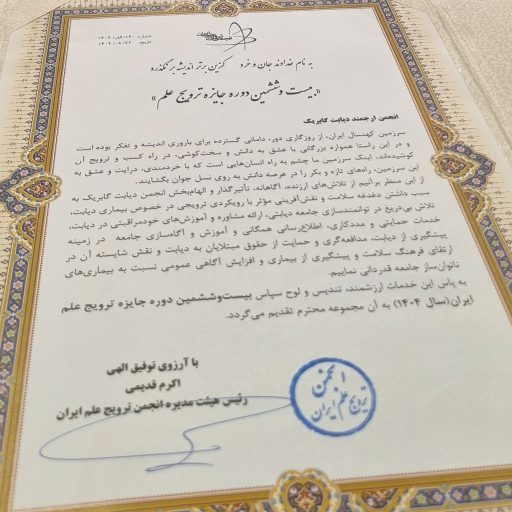 به نام خداوند جان و خرد کزین برتر اندیشه بر نگذرد
«بیست و ششمین دوره جایزه ترویج علم»
انجمن ارجمند دیابت گابریک
سرزمین کهنسال ایران، از روزگاری دور، دامانی گسترده برای باروری اندیشه و تفکر بوده است
و در این راستا همواره بزرگانی با عشق به دانش و سخت‌کوشی، در راه کسب و ترویج آن
کوشیده‌اند. اینک سرزمین ما چشم به راه انسان‌هایی است که با خردمندی، درایت و عشق به
این سرزمین، راه‌های تازه و بکر را در عرصه دانش به روی نسل جوان بگشایند.
از این منظر برآنیم از تلاش‌های ارزنده، آگاهانه، تأثیرگذار و الهام‌بخش انجمن دیابت گابریک به
سبب داشتن دغدغه سلامت و نقش‌آفرینی مؤثر با رویکردی ترویجی در خصوص بیماری دیابت،
تلاش بی‌دریغ در توانمندسازی جامعه دیابتی، ارائه مشاوره و آموزش‌های خودمراقبتی در دیابت،
خدمات حمایتی و مددکاری، اطلاع‌رسانی همگانی و آموزش و آگاه‌سازی جامعه در زمینه
پیشگیری از دیابت، مدافعه‌گری و حمایت از حقوق مبتلایان به دیابت و نقش شایسته آن در
ارتقای فرهنگ سلامت و پیشگیری از بیماری و افزایش آگاهی عمومی نسبت به بیماری‌های
ناتوان‌ساز جامعه قدردانی نماییم.
به پاس این خدمات ارزشمند، تندیس و لوح سپاس بیست‌وششمین دوره جایزه ترویج علم
ایران(سال ۱۴۰۴) به آن مجموعه محترم تقدیم می‌گردد.
با آرزوی توفیق الهی
اکرم قدیمی
رئیس هیئت مدیره انجمن ترویج علم ایران
انجمن
ترویج علم ایران